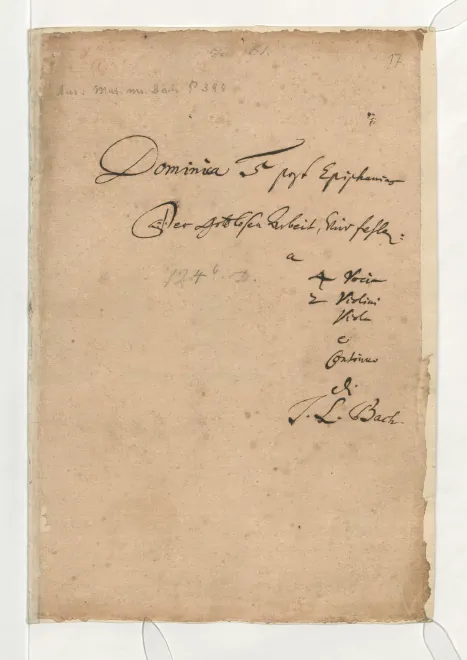 17
Aus: Mus. ms. Bach P 397
Dominica 5 post Epiphanias
Der Gottlosen Arbeit, wird fehlen:
a
4 Voci
2 Violini
Viola
e
Continuo
di
J. L. Bach.